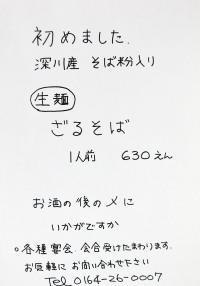 初めました.
深川産 そば粉入り
生麺
ざるそば
1人前 630えん
お酒の後の〆に
いかがですか
○各種宴会、会合受けたまわります.
お気軽に お問い合わせ下さい
Tel 0164-26-0007